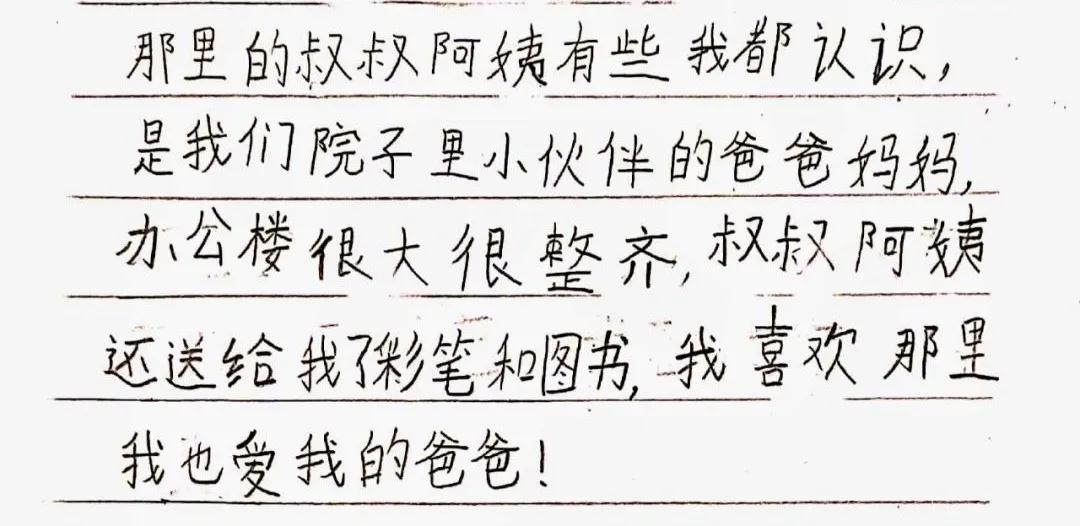 那里的叔叔阿姨有些我都认识，
是我们院子里小伙伴的爸爸妈妈，
办公楼很大很整齐，叔叔阿姨
还送给我了彩笔和图书，我喜欢那里
我也爱我的爸爸！